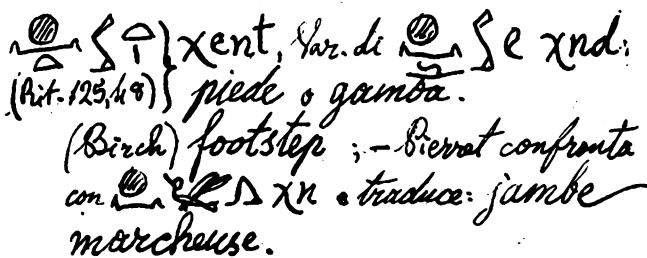 } χent, Var. di e χnd;
(Rit. 125,48) } piede o gamba.
(Birch) footstep ; – Pierret confronta
con χn e traduce: jambe
marcheuse.